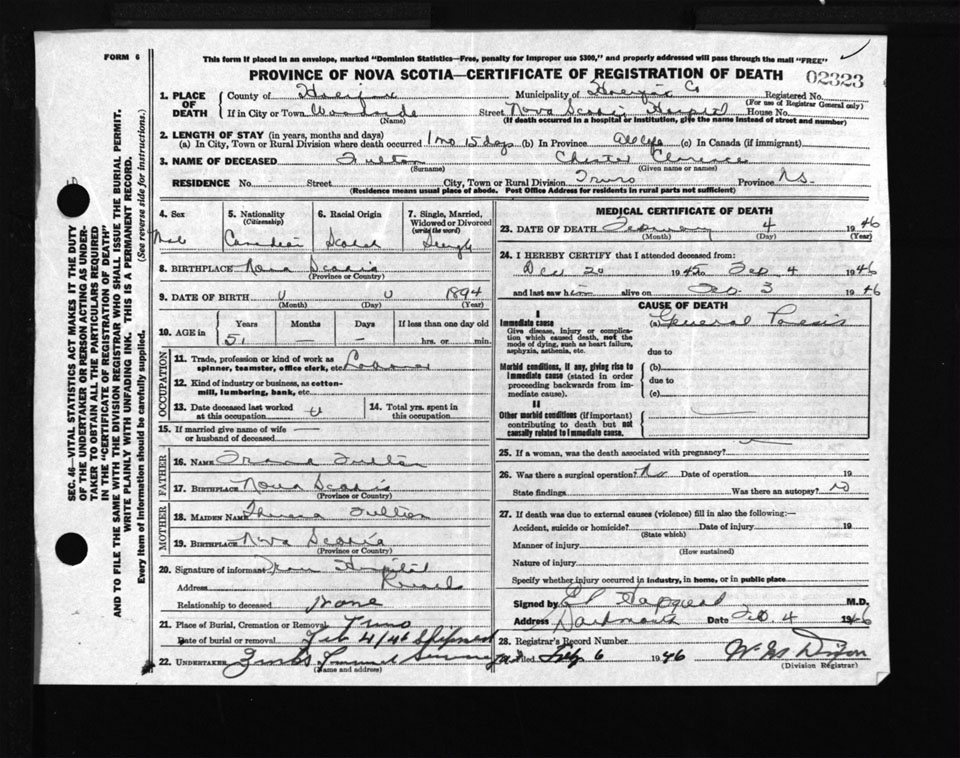 FORM 6
This form if placed in an envelope, marked "Dominion Statistics—Free, penalty for improper use $300," and properly addressed will pass through the mail "FREE"
PROVINCE OF NOVA SCOTIA—CERTIFICATE OF REGISTRATION OF DEATH
02323
SEC. 46—VITAL STATISTICS ACT MAKES IT THE DUTY
OF THE UNDERTAKER OR PERSON ACTING AS UNDER-
TAKER TO OBTAIN ALL THE PARTICULARS REQUIRED
IN THE "CERTIFICATE OF REGISTRATION OF DEATH"
AND TO FILE THE SAME WITH THE DIVISION REGISTRAR WHO SHALL ISSUE THE BURIAL PERMIT.
WRITE PLAINLY WITH UNFADING INK. THIS IS A PERMANENT RECORD.
Every item of Information should be carefully supplied. (See reverse side for instructions.)
1. PLACE OF DEATH
County of Halifax Municipality of Halifax Co Registered No.
(For use of Registrar General only)
If in City or Town Woodside Street Nova Scotia Hospital House No.
(Name) (If death occurred in a hospital or institution, give the name instead of street and number)
2. LENGTH OF STAY (in years, months and days)
(a) In City, Town or Rural Division where death occurred 1 mo 15 days (b) In Province All life (c) In Canada (if immigrant)
3. NAME OF DECEASED Fulton Chester Clarence
(Surname) (Given name or names)
RESIDENCE No. Street City, Town or Rural Division Truro Province N.S.
(Residence means usual place of abode. Post Office Address for residents in rural parts not sufficient)
4. Sex Male
5. Nationality (Citizenship) Canadian
6. Racial Origin Scotch
7. Single, Married, Widowed or Divorced (write the word) Single
8. BIRTHPLACE Nova Scotia
(Province or Country)
9. DATE OF BIRTH U U 1894
(Month) (Day) (Year)
10. AGE in Years Months Days If less than one day old
51 — — hrs. or min.
OCCUPATION
11. Trade, profession or kind of work as spinner, teamster, office clerk, etc. Laborer
12. Kind of industry or business, as cotton-mill, lumbering, bank, etc.
13. Date deceased last worked at this occupation U
14. Total yrs. spent in this occupation
15. If married give name of wife or husband of deceased —
FATHER
16. NAME Fulton
17. BIRTHPLACE Nova Scotia
(Province or Country)
MOTHER
18. MAIDEN NAME Theresa Fulton
19. BIRTHPLACE Nova Scotia
(Province or Country)
20. Signature of informant From Hospital
Address Records
Relationship to deceased None
21. Place of Burial, Cremation or Removal Truro
Date of burial or removal Feb 4/46 Shipped
22. UNDERTAKER
(Name and address)
MEDICAL CERTIFICATE OF DEATH
23. DATE OF DEATH February 4 1946
(Month) (Day) (Year)
24. I HEREBY CERTIFY that I attended deceased from:
Dec 20 1945 to Feb 4 1946
and last saw him alive on Feb 3 1946
CAUSE OF DEATH
I
Immediate cause
Give disease, injury or complication which caused death, not the mode of dying, such as heart failure, asphyxia, asthenia, etc.
(a) General Paresis
due to
Morbid conditions, if any, giving rise to immediate cause (stated in order proceeding backwards from immediate cause).
(b)
due to
(c)
II
Other morbid conditions (if important) contributing to death but not causally related to immediate cause.
25. If a woman, was the death associated with pregnancy?
26. Was there a surgical operation? No Date of operation 19
State findings Was there an autopsy? No
27. If death was due to external causes (violence) fill in also the following:—
Accident, suicide or homicide? Date of injury 19
(State which)
Manner of injury
(How sustained)
Nature of injury
Specify whether injury occurred in industry, in home, or in public place
Signed by M.D.
Address Dartmouth Date Feb. 4 1946
28. Registrar's Record Number
Filed Feb 6 1946
(Division Registrar)